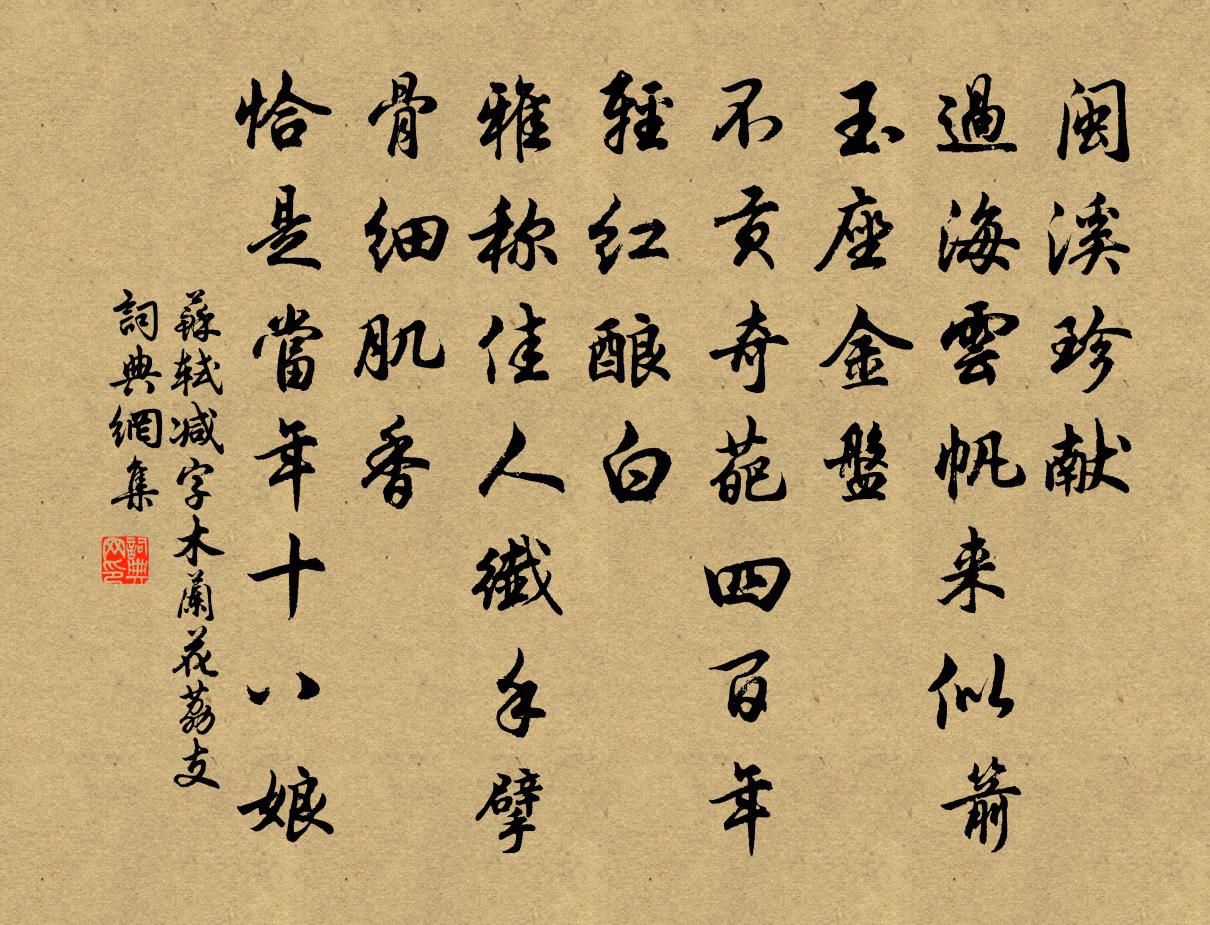 闽溪珍献
過海雲帆来似箭
玉座金盤
不贡奇葩四百年
輕红酿白
雅称佳人纖手擘
骨细肌香
恰是當年十八娘
蘇轼减字木蘭花荔支
詞典網集
詞典网印